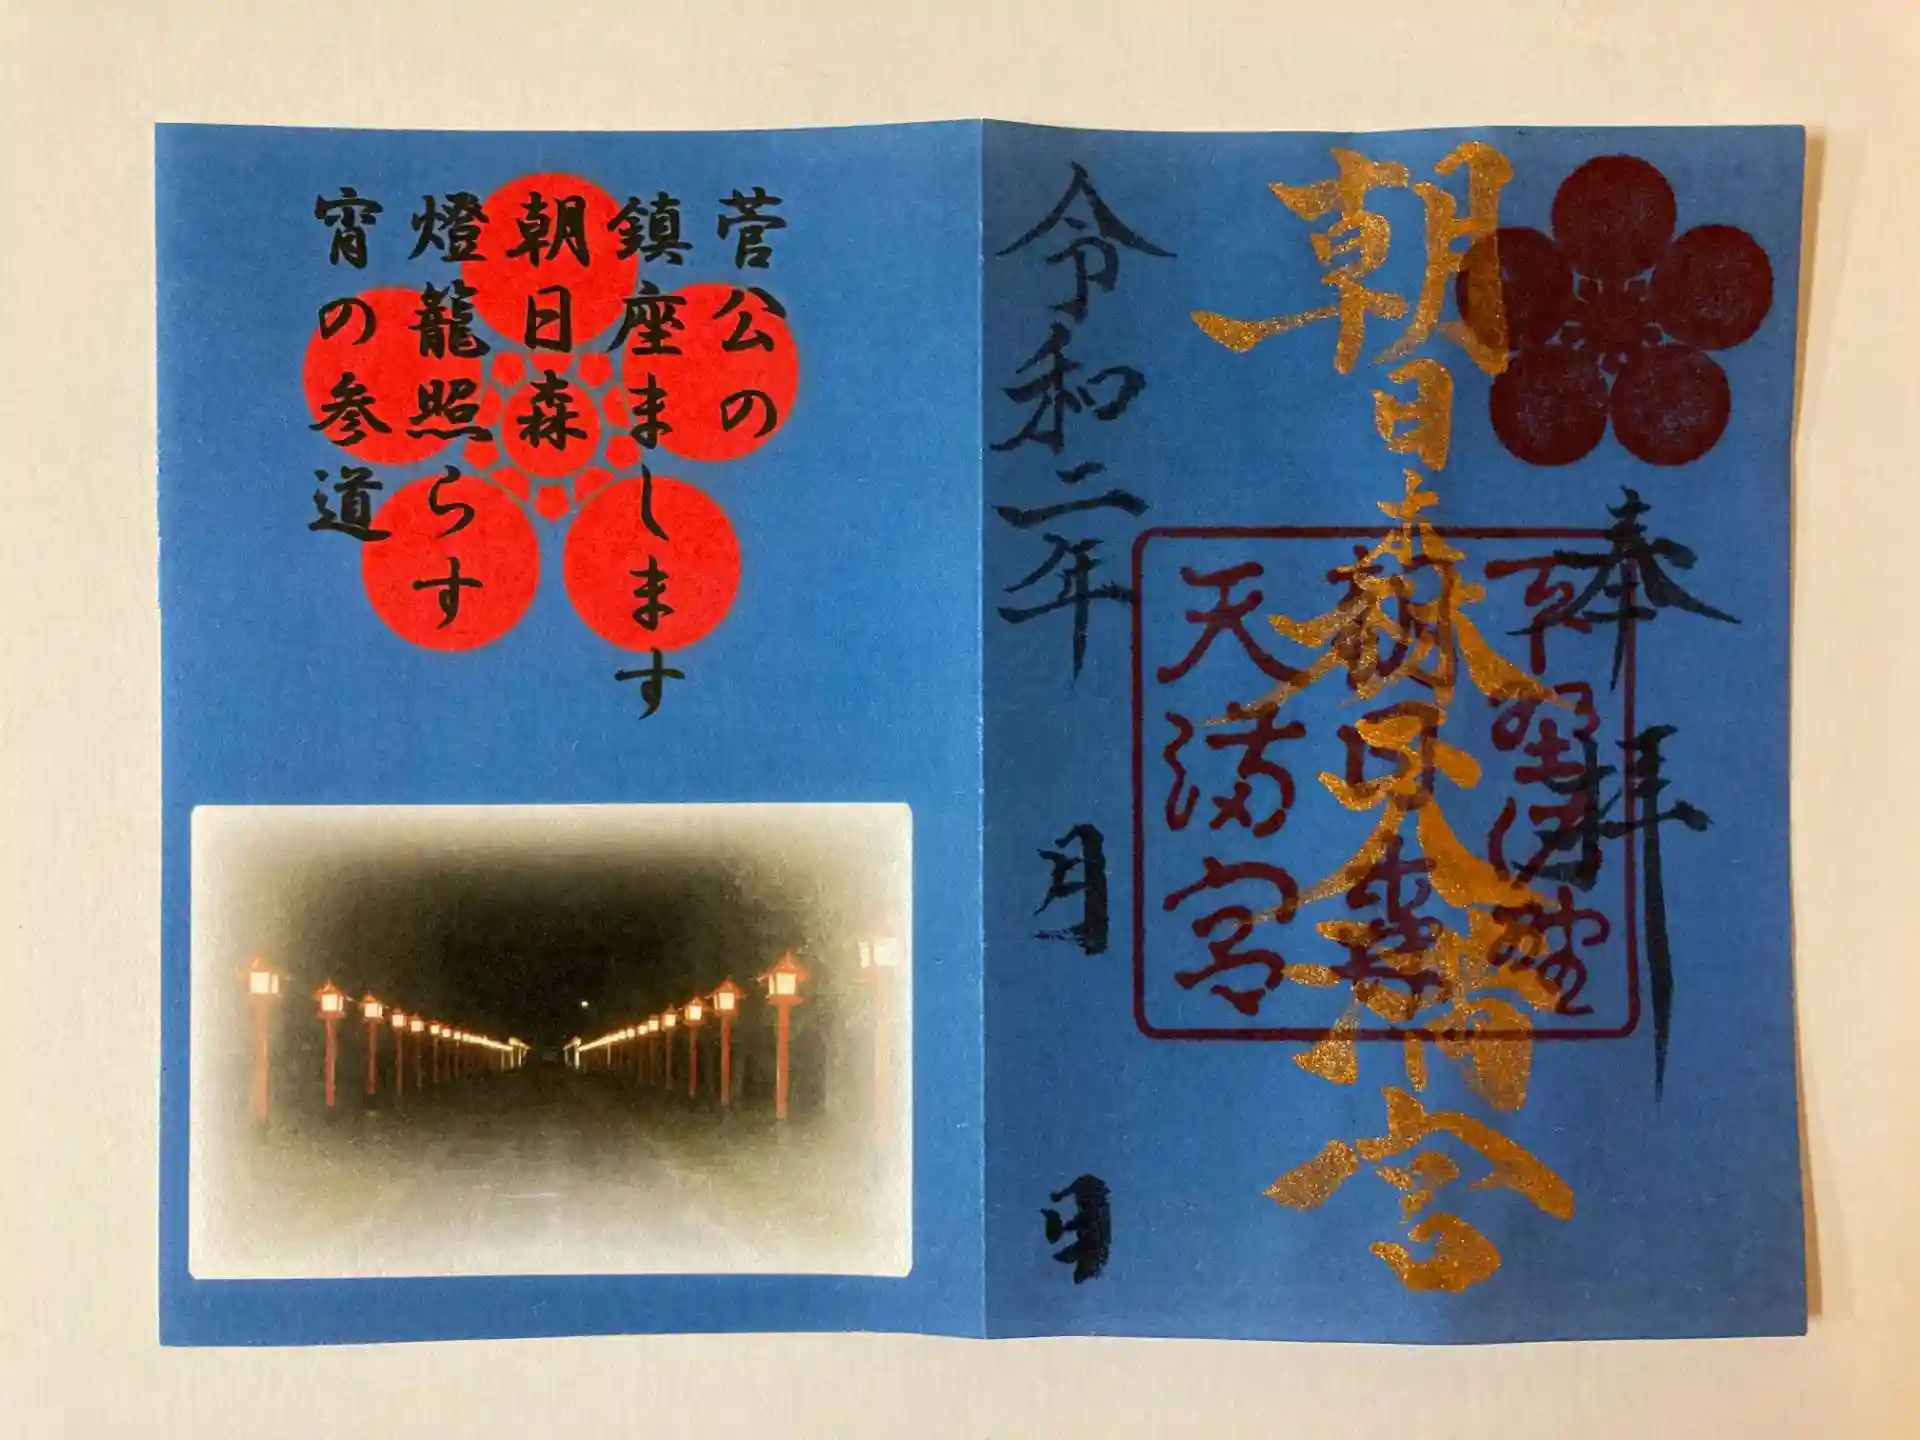 奉拝
朝日森天満宮
下野佐野
朝日森
天満宮
令和二年
月
日
菅公の
鎮座まします
朝日森
燈籠照らす
宵の参道